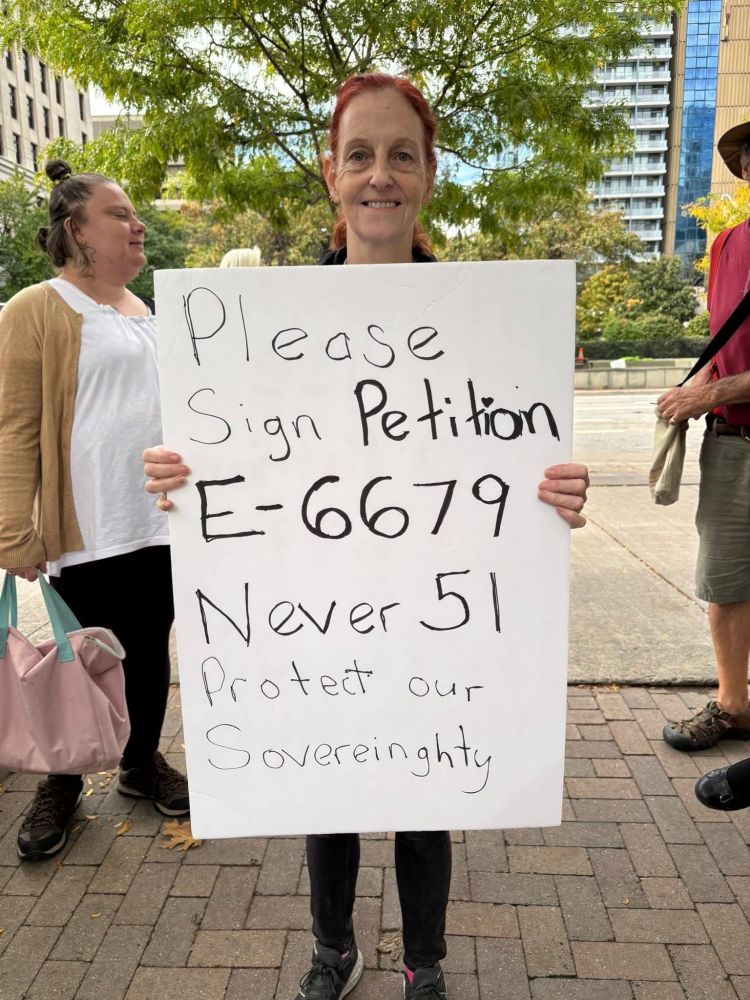 Please
Sign Petition
E-6679
Never 51
Protect our
Sovereinghty